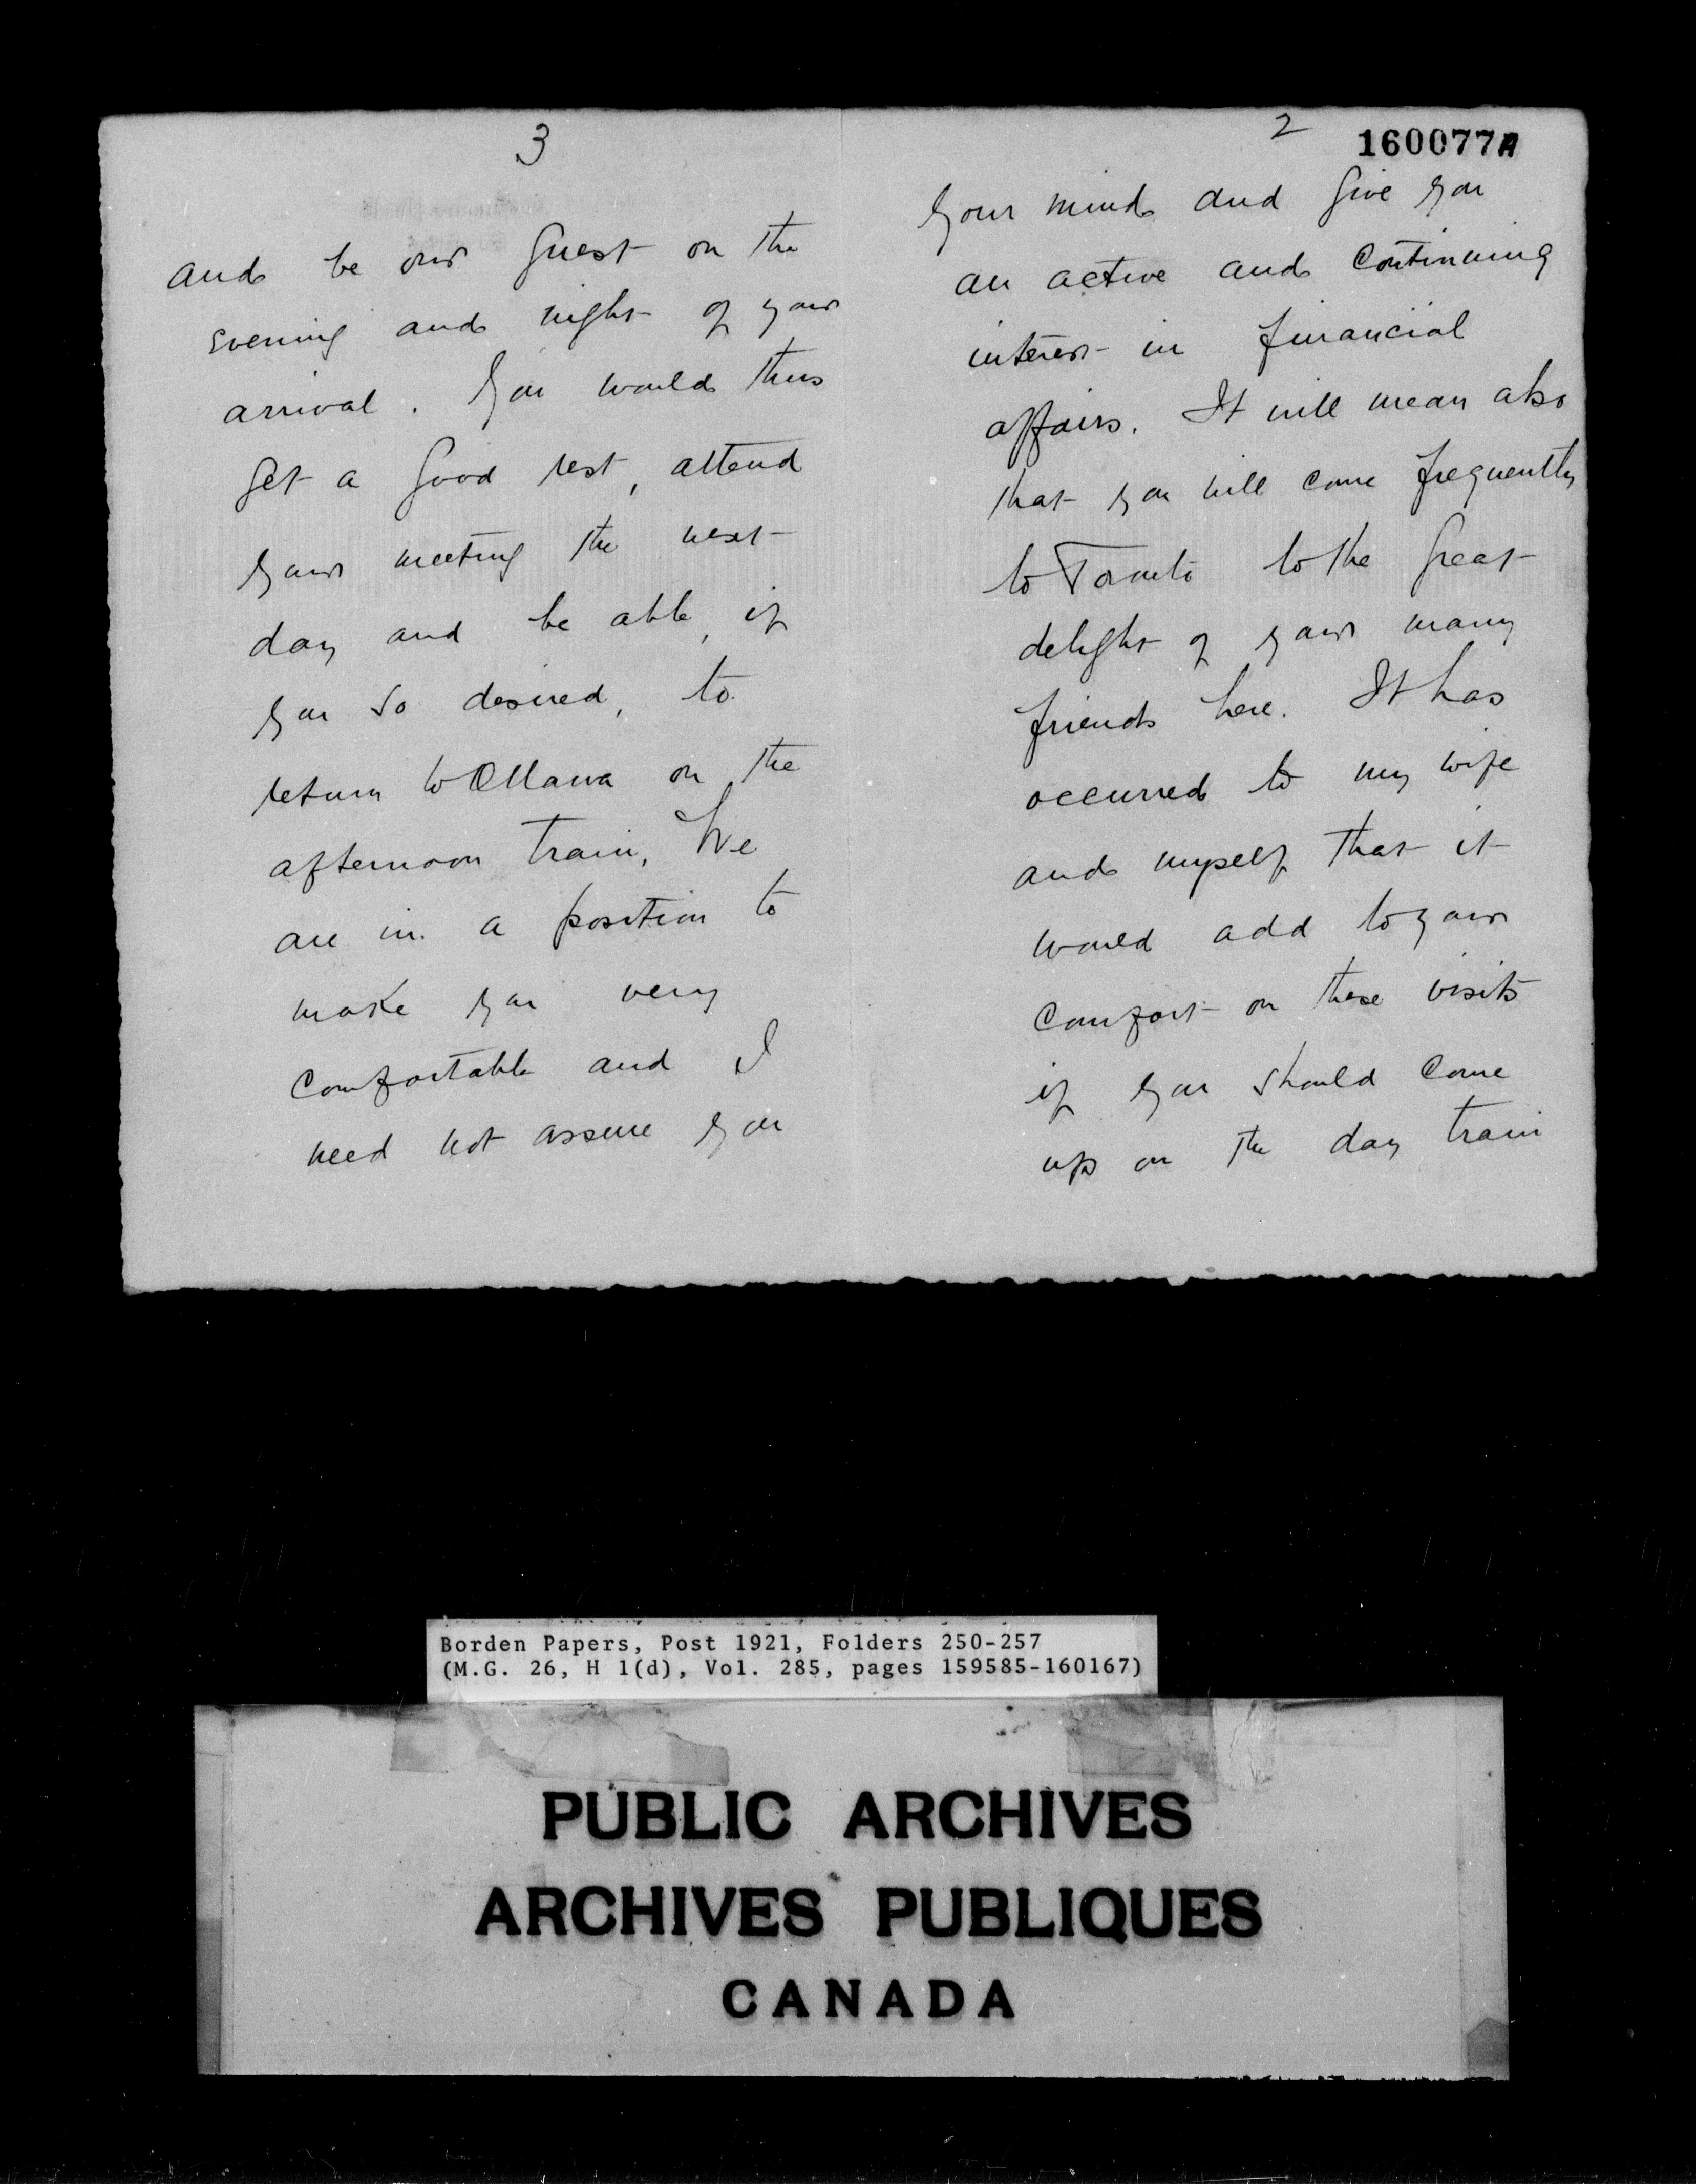 2
160077A
your mind and give you
an active and continuing
interest in financial
affairs. It will mean also
that you will come frequently
to Toronto to the great
delight of your many
friends here. It has
occurred to my wife
and myself that it
would add to your
comfort on these visits
if you should come
up on the day train
3
and be our guest on the
evening and night of your
arrival. You would thus
get a good rest, attend
your meeting the next
day and be able, if
you so desired, to
return to Ottawa on the
afternoon train. We
are in a position to
make you very
comfortable and I
need not assure you
Borden Papers, Post 1921, Folders 250-257
(M.G. 26, H 1(d), Vol. 285, pages 159585-160167)
PUBLIC ARCHIVES
ARCHIVES PUBLIQUES
CANADA